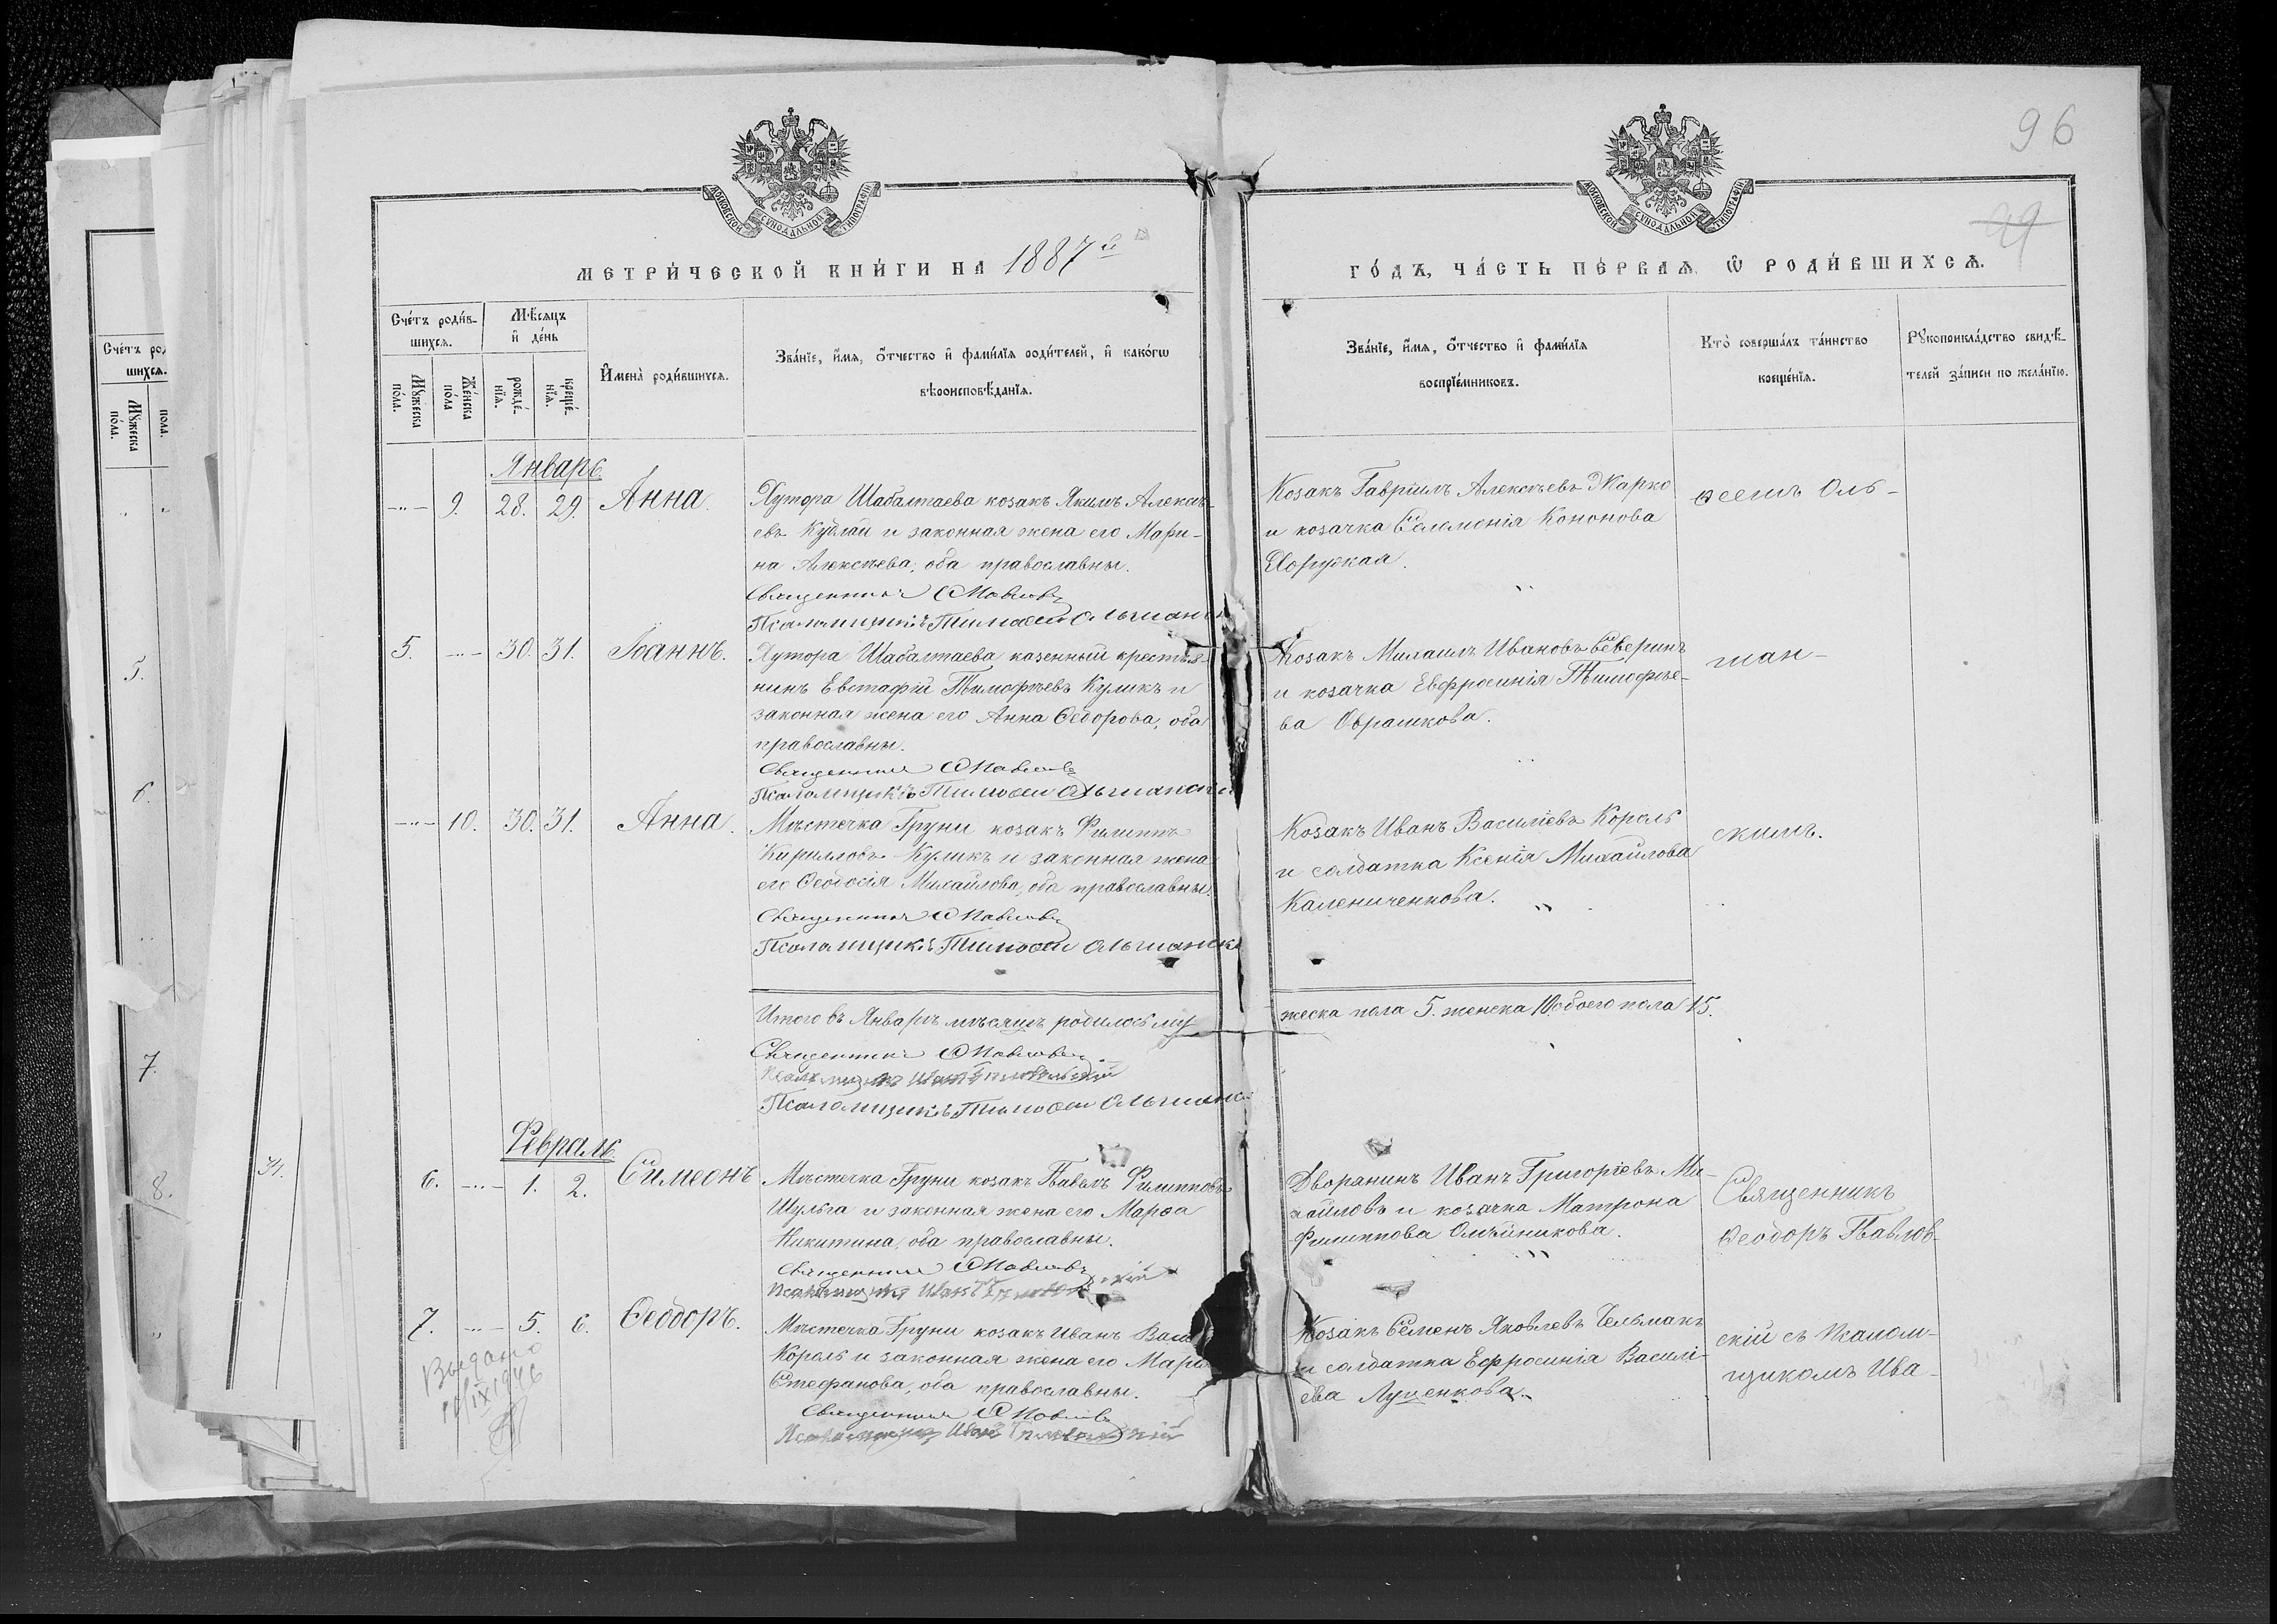 96
99
МОСКОВСКОЙ СУНОДАЛЬНОЙ ТИПОГРАФІИ
МОСКОВСКОЙ СУНОДАЛЬНОЙ ТИПОГРАФІИ
МЕТРИ́ЧЕСКОЙ КНИ́ГИ НА 1887й
ГО́ДЪ, ЧА́СТЬ ПЕ́РВАѦ, Ѡ РОДИ́ВШИХСѦ.
Сче́тъ роди́в-
шихсѧ.
Мѣ́сѧцъ
и҆ де́нь
Мꙋ́жеска
по́ла.
Же́нска
по́ла
рожде́-
нїѧ.
креще́-
нїѧ.
И҆мена̀ роди́вшихсѧ.
Зва́нїе, и҆́мѧ, ѻ҆́тчество и҆ фами́лїѧ роди́телей, и҆ како́гѡ
вѣроисповѣ́данїѧ.
Зва́нїе, и҆́мѧ, ѻ҆́тчество и҆ фами́лїѧ
воспрїе́мниковъ.
Кто̀ соверша́лъ та́инство
креще́нїѧ.
Рꙋкоприкла́дство свидѣ́-
телей за́писи по жела́нїю.
Сче́тъ ро
шихсѧ.
Мꙋ́жеска
по́ла.
пола.
5.
6.
7.
8.
34.
Январь
9. 28. 29. Анна.
Хутора Шабалтаева козакъ Якимъ Алексѣ-
евъ Кудлай и законная жена его Мари-
на Алексѣева, оба православны.
Священникъ Ѳ Павловъ
Псаломщикъ Тимоѳей Ольшанск
Козакъ Гавріилъ Алексѣевъ Жарко
и козачка Соломонія Кононова
Хоружая.
ѳеемъ Оль-
5. 30. 31. Іоаннъ.
Хутора Шабалтаева казенный крестья-
нинъ Евстафій Тимофѣевъ Куликъ и
законная жена его Анна Ѳедорова, оба
православны.
Священникъ Ѳ Павловъ
Псаломщикъ Тимоѳей Ольшанскі
Козакъ Михаилъ Ивановъ Северинъ
и козачка Евфросинія Тимофѣе-
ва Оврашкова.
шан-
10. 30. 31. Анна.
Мѣстечка Груни козакъ Филиппъ
Кирилловъ Куликъ и законная жена
его Ѳеодосія Михайлова, оба православны.
Священникъ Ѳ Павловъ
Псаломщикъ Тимоѳей Ольшанскі
Козакъ Иванъ Василіевъ Король
и солдатка Ксенія Михайлова
Калениченкова.
скимъ.
Итого въ Январѣ мѣсяцѣ родилось му-
жеска пола 5. женска 10 обоего пола 15.
Священникъ Ѳ Павловъ
Псаломщикъ Иванъ
Псаломщикъ Тимоѳей Ольшанс
Февраль.
6. 1. 2. Симеонъ
Мѣстечка Груни козакъ Павелъ Филипповъ
Шульга и законная жена его Марѳа
Никитина, оба православны.
Священникъ Ѳ Павловъ
Псаломщикъ Иванъ
Дворянинъ Иванъ Григоріевъ Ми-
хайловъ и козачка Матрона
Филиппова Олѣйникова.
Священникъ
Ѳеодоръ Павлов-
7. 5. 6. Ѳеодоръ.
Мѣстечка Груни козакъ Иванъ Васи
Король и законная жена его Марѳ
Стефанова, оба православны.
Священникъ Ѳ Павловъ
Псаломщикъ Иванъ
Козакъ Семенъ Яковлевъ Чельмакъ
и солдатка Ефросинія Василі-
ева Луценкова.
скій съ Псалом-
щикомъ Ива-
Выдано
10/IX 1946